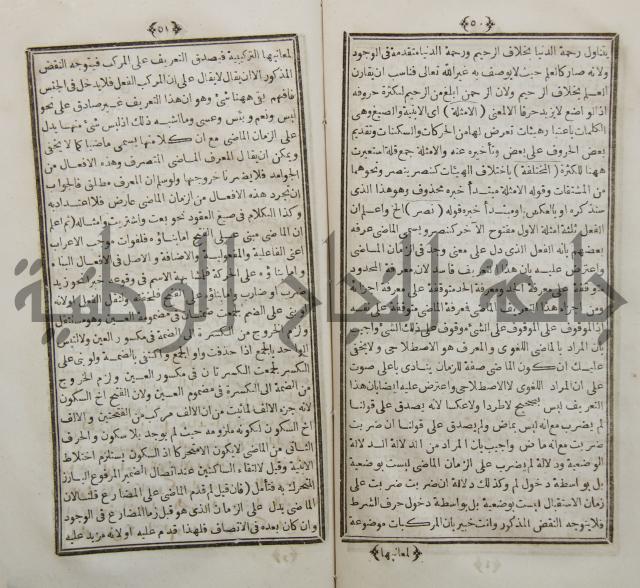 ﴿٥٠﴾
يتناول رحمة الدنيا بخلاف الرحيم ورحمة الدنيا متقدمة فى الوجود
ولانه صار كالعلم حيث لا يوصف به غير الله تعالى فناسب ان يقارن
العلم بخلاف الرحيم ولان الرحمن ابلغ من الرحيم لكثرة حروفه
اذ الواضع لا يزيد حرفا الا لمعنى (الامثلة) اى الابنية والصيغ وهى
الكلمات باعتبار هيئات تعرض لها من الحركات والسكنات وتقديم
بعض الحروف على بعض وتأخيره عنه والامثلة جمع قلة استعيرت
ههنا للكثرة (المختلفة) باختلاف الهيئات كنصر ينصر ونحوهما
من المشتقات وقوله الامثلة مبتدأ خبره محذوف وهو هذا الذى
سنذكره او بالعكس او مبتدأ خبره قوله (نصر) الخ واعلم ان
الفعل ثلثة امثلة الاول مفتوح الآخر كنصر ويسمى ماضى عرفه
بعضهم بانه الفعل الذى دل على معنى وجد فى الزمان الماضى
واعترض عليه بان هذا التعريف فاسد لان معرفة المحدود
موقوفة على معرفة الحد ومعرفة الحد متوقفة على معرفة اجزائه
ومن اجزاء هذا التعريف الماضى فمعرفة الماضى متوقفة على نفسه
اذ الموقوف على الموقوف على الشئ موقوف على ذلك الشئ واجيب
بان المراد بالماضى اللغوى والمعرف هو الاصطلاحى ولا يخفى
عليك ان كون الماضى صفة للزمان ينادى باعلى صوت
على ان المراد اللغوى لا الاصطلاحى واعترض عليه ايضا بان هذا
التعريف ليس بصحيح لا طردا ولا عكسا لانه يصدق على قولنا
لم يضرب مع انه ليس بماض ولم يصدق على قولنا ان ضربت
ضربت مع انه ماض واجيب بان المراد من الدلالة الدلالة
الوضعية ودلالة لم يضرب على الزمان الماضى ليست بوضعية
بل بواسطة دخول لم وكذلك دلالة ان ضربت ضربت على
زمان الاستقبال ليست بوضعية بل بواسطة دخول حرف الشرط
فلا يتوجه النقض المذكور وانت خبير بان المركبات موضوعة
﴿لمعانيها﴾
﴿٥١﴾
لمعانيها التركيبية فيصدق التعريف على المركب فيتوجه النقض
المذكور الا ان يقال لا يقال على ان المركب الفعل فلا يدخل فى الجنس
فافهم بقى ههنا شئ وهو ان هذا التعريف غير صادق على نحو
ليس ونعم وبئس وعسى وما اشبه ذلك اذ ليس شئ منها يدل
على الزمان الماضى مع ان كلا منها يسمى ماضيا كما لا يخفى
ويمكن ان يقال المعرف الماضى المتصرف وهذه الافعال من
الجوامد فلا يضرنا خروجها ولو سلم ان المعرف مطلق فالجواب
ان تجرد هذه الافعال من الزمان الماضى عارض فلا اعتداد به
وكذا الكلام فى صيغ العقود نحو بعت واشتريت وامثاله (ثم اعلم
ان الماضى مبنى على الفتح اما بناؤه فلفوات موجب الاعراب
اعنى الفاعلية والمفعولية والاضافة والاصل فى الافعال البناء
واما بناؤه على الحركة فلمشابهة الاسم فى وقوعه خبرا نحو زيد
ضرب او ضارب واما بناؤه على الفتح فلخفته وثقل الفعل ولانه
لو بنى على الضم لجمعت ضمتان فى مضموم العين وهو مستثقل
ولزم الخروج من الكسرة الى الضمة فى مكسور العين ولالتبس
الواحد بالجمع اذا حذفت واو الجمع واكتفى بالضمة ولو بنى على
الكسر لجمعت الكسرتان فى مكسور العين ولزم الخروج
من الضمة الى الكسرة فى مضموم العين ولان الفتح اخ السكون
لانه جزء الالف لما ثبت من ان الالف مركب من الفتحتين والالف
اخ السكون لكونه ملزومه حيث لم يوجد بلا سكون والحرف
الثانى من الماضى لا يكون الا متحركا اذ السكون يستلزم اختلاط
الابنية وقيل لالتقاء الساكنين عند اتصال الضمير المرفوع البارز
المتحرك به فتأمل (فان قيل لم قدم الماضى على المضارع قلنا لان
الماضى يدل على الزمان الذى هو قبل زمان المضارع فى الوجود
وان كان بعده فى الاتصاف فلهذا قدم عليه او لانه مزيد عليه
جامعة النجاح الوطنية